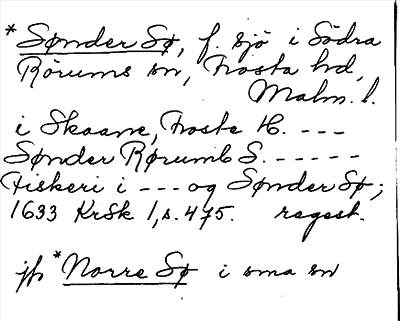 *Sønder Sø, f. sjö i Södra
Rörums sn, Frosta hd,
Malm. l.
i Skaane, Froste H. ---
Sønder Rørumb S. -----
Fiskeri i --- og Sønder Sø;
1633 KrSk 1, s. 475. regest.
jfr *Norre Sø i sma sn